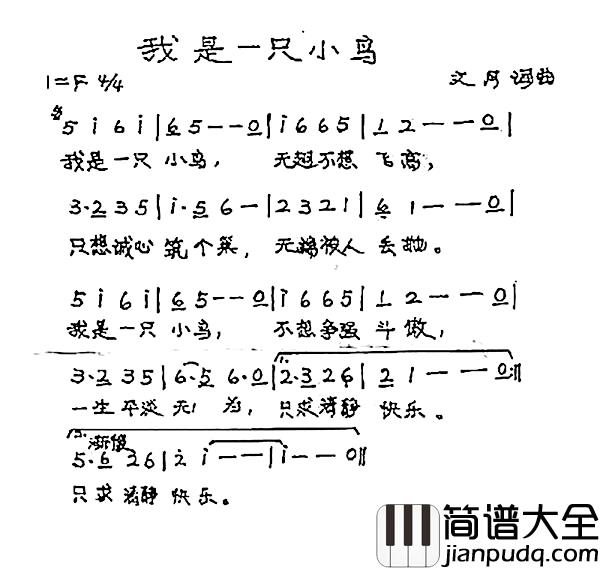 我是一只小鸟
1=F 4/4 文月词曲
5 i 6 i | 6 5 - - 0 | i 6 6 5 | 1 2 - - 0 |
我是一只 小鸟， 无翅不想 飞高，
3·2 3 5 | i·5 6 - | 2 3 2 1 | 6 1 - - 0 |
只想诚心 筑个巢， 无端被人 丢抛。
5 i 6 i | 6 5 - - 0 | i 6 6 5 | 1 2 - - 0 |
我是一只 小鸟， 不想争强 斗傲，
1.
3·2 3 5 | 6·5 6·0 | 2·3 2 6 | 2 1 - - 0 :||
一生平淡 无 为， 只求清静 快乐。
2. 渐慢
5·6 2 6 | 2 i - - | i - - 0 ||
只求清静 快乐。
简谱大全
jianpudq.com